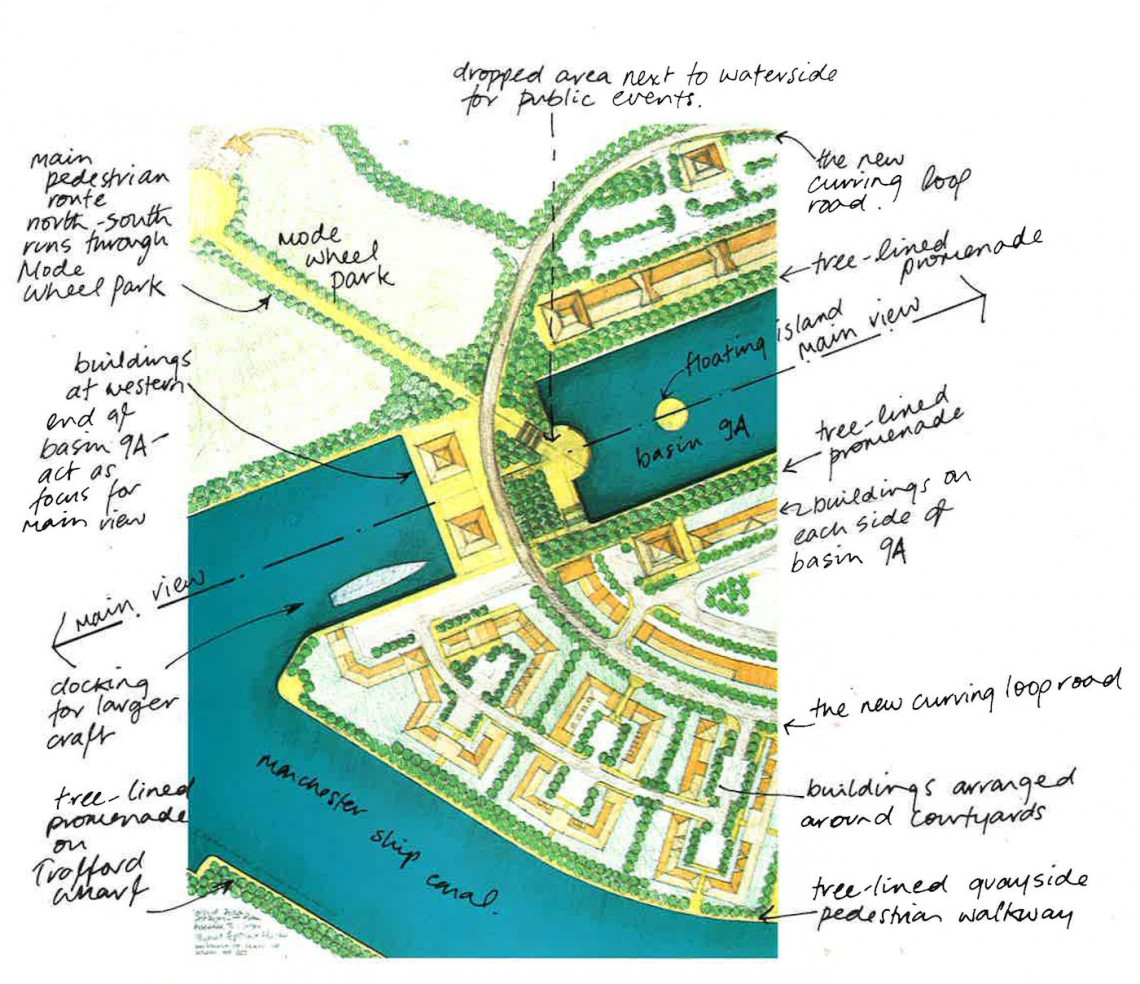 dropped area next to waterside
for public events.
main
pedestrian
route
north-south
runs through
Mode
Wheel Park
mode
wheel
park
the new
curving loop
road.
tree-lined
promenade
main view
floating island
basin 9A
buildings
at western
end of
basin 9A -
act as
focus for
main view
tree-lined
promenade
buildings on
each side of
basin 9A
main view
docking
for larger
craft
the new curving loop road
manchester ship canal.
buildings arranged
around courtyards
tree-lined
promenade
on
Trafford
wharf
tree-lined quayside
pedestrian walkway